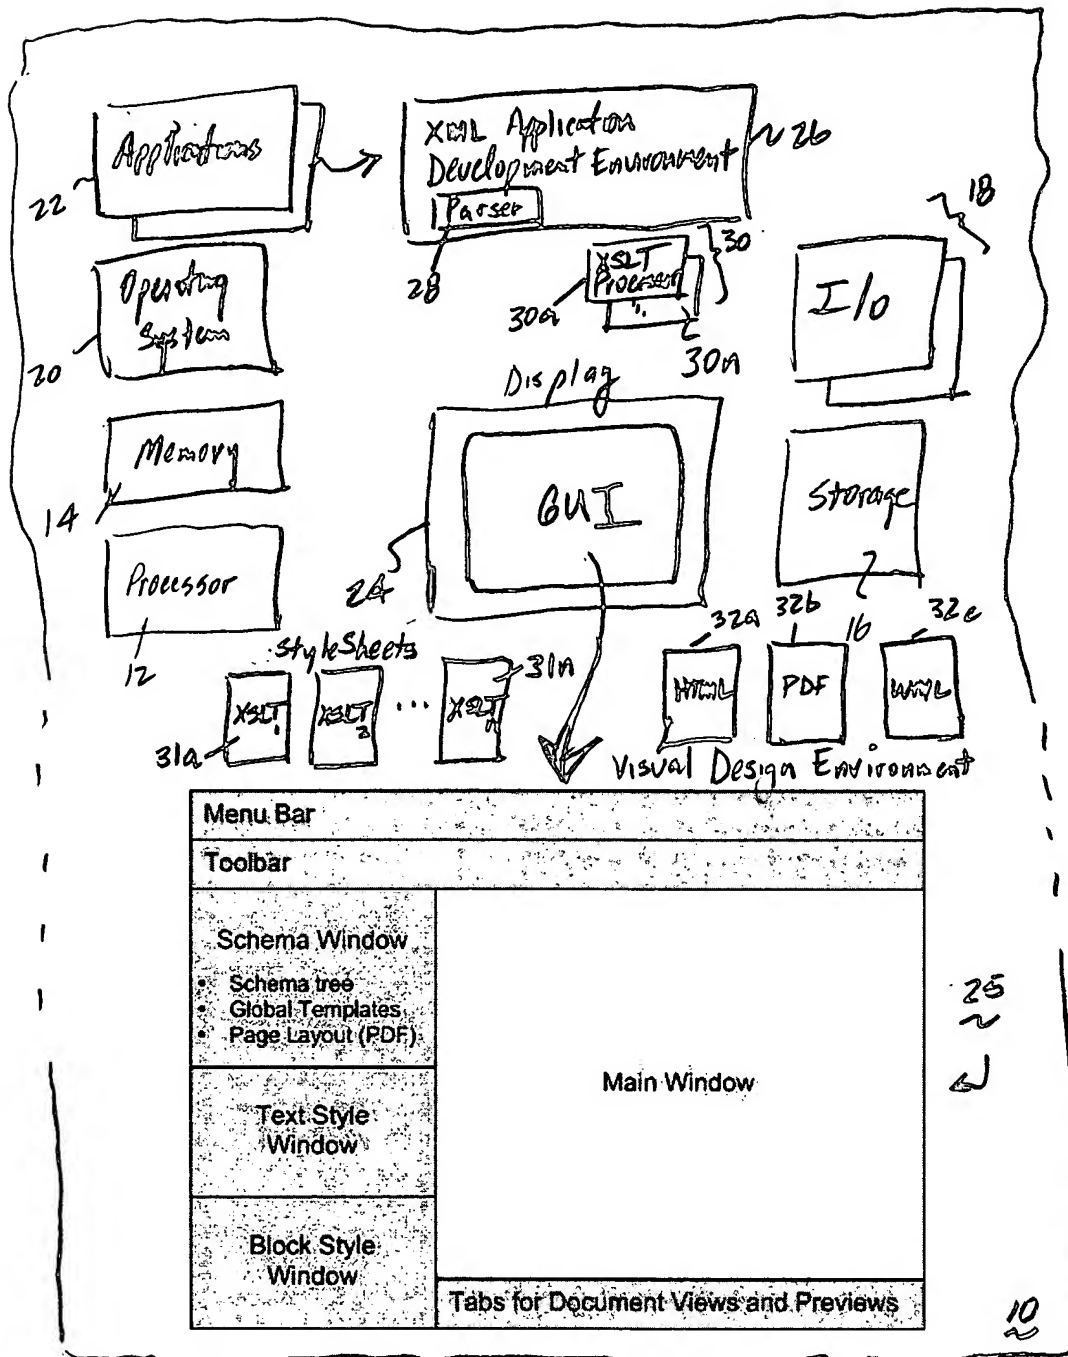 Applications
22
XML Application
Development Environment
Parser
26
28
XSLT
Processor
30
30a
30n
18
I/O
Operating
System
20
Display
GUI
24
Memory
14
Storage
16
Processor
12
StyleSheets
XSLT 1
XSLT 2
...
XSLT n
31a
31n
32a
32b
32c
HTML
PDF
WML
Visual Design Environment
Menu Bar
Toolbar
Schema Window
• Schema tree
• Global Templates
• Page Layout (PDF)
Text Style
Window
Block Style
Window
Main Window
Tabs for Document Views and Previews
25
10